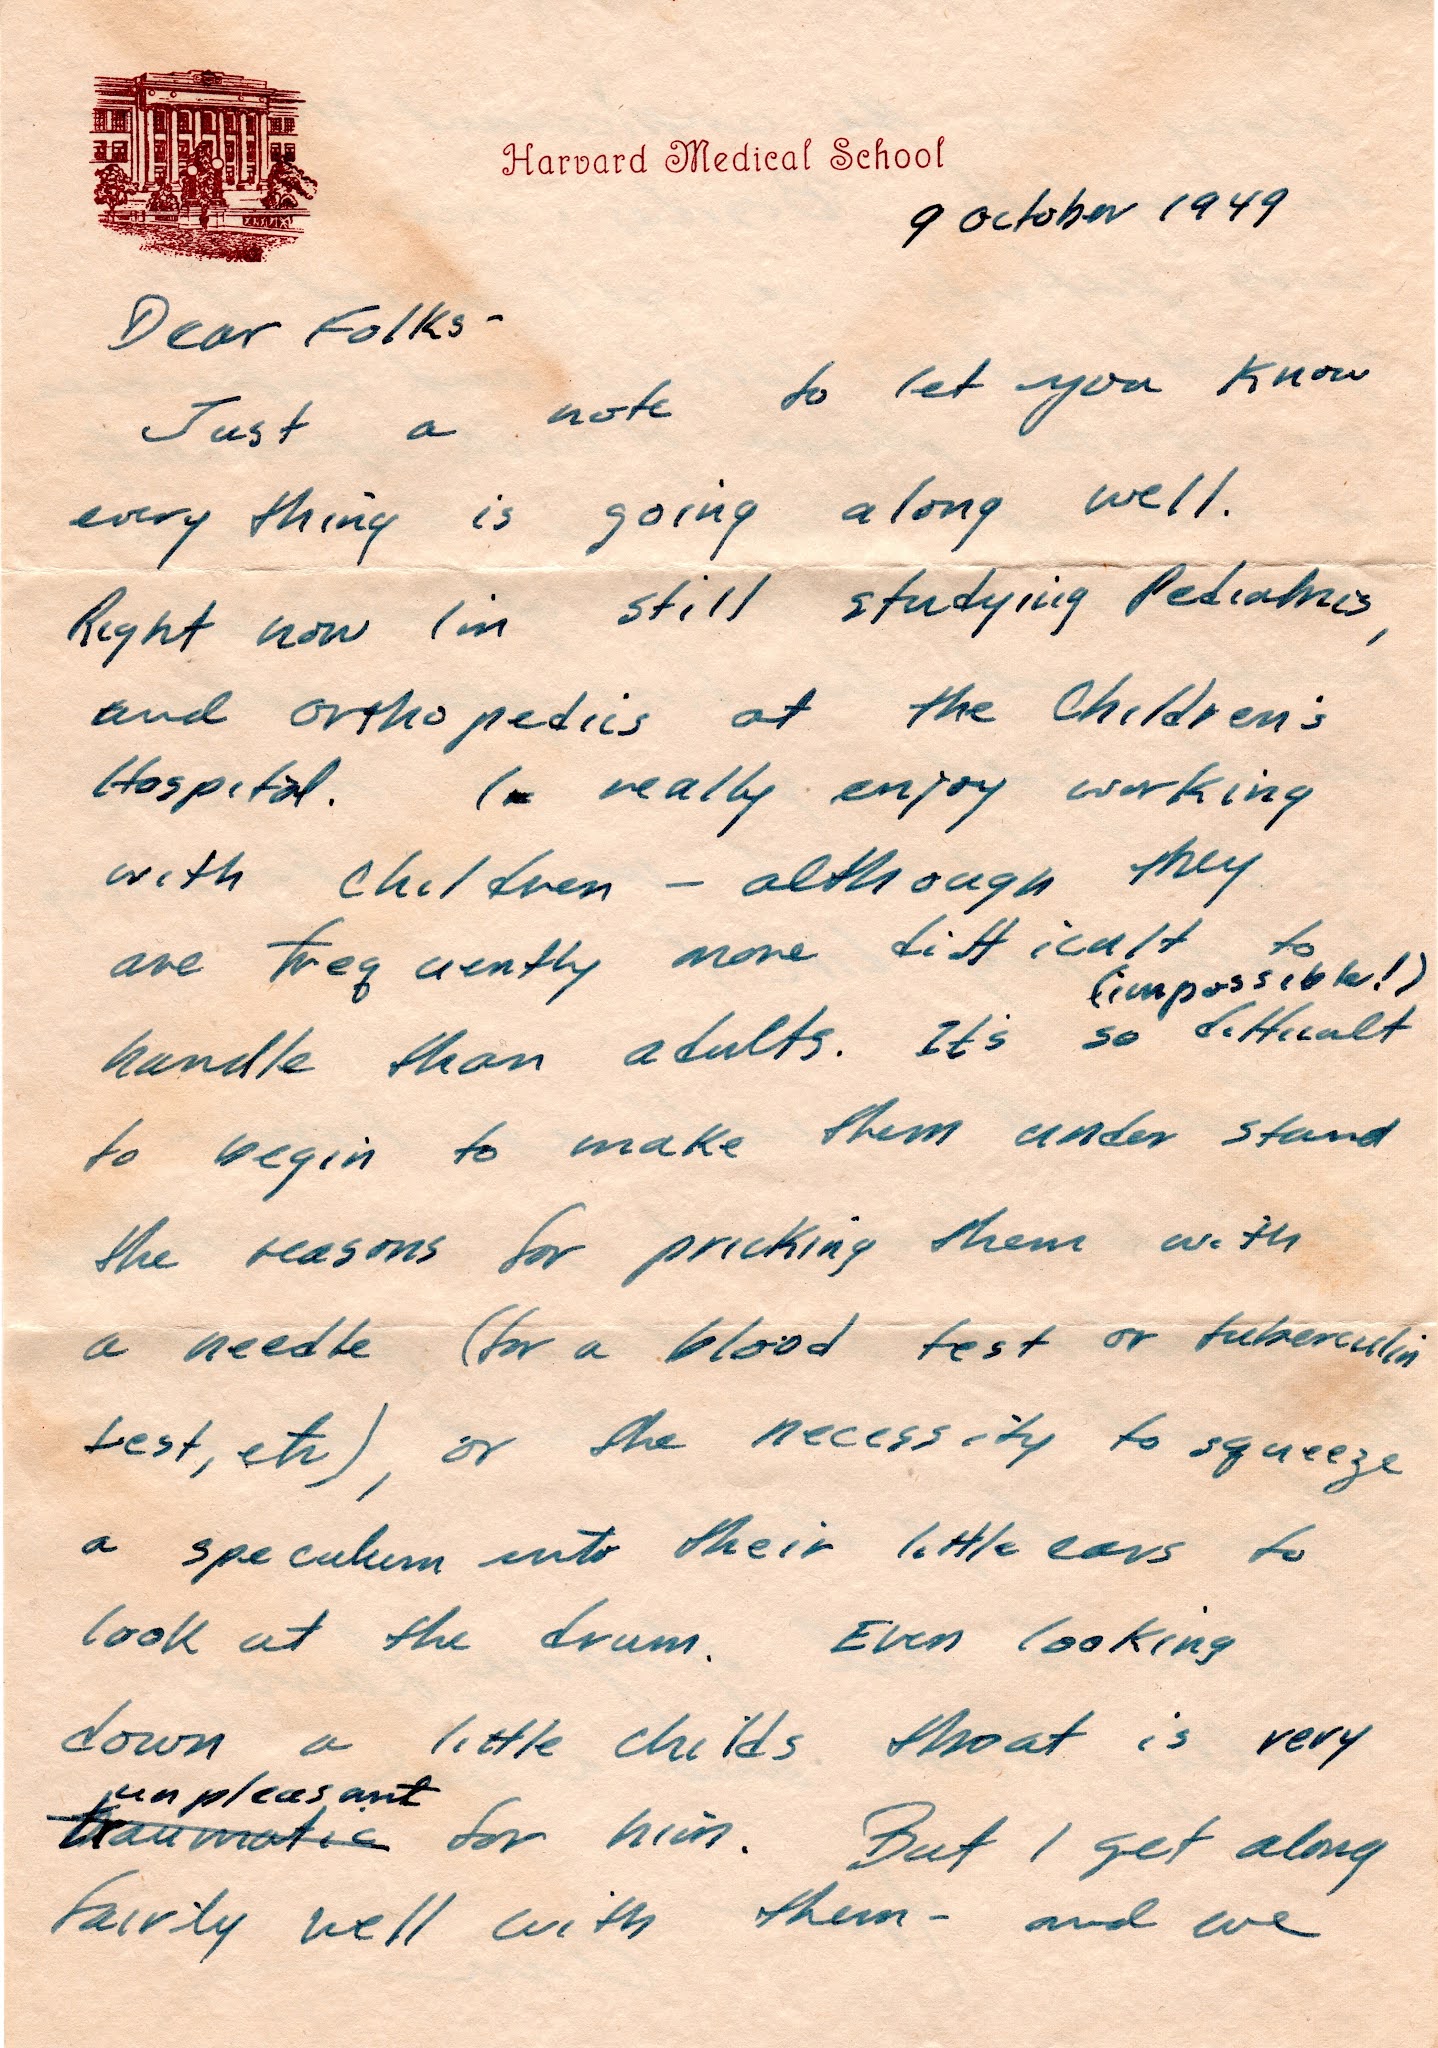 Harvard Medical School
9 October 1949
Dear Folks-
Just a note to let you know
every thing is going along well.
Right now I'm still studying Pediatrics,
and orthopedics at the Children's
Hospital. I really enjoy working
with children - although they
are frequently more difficult to
(impossible!)
handle than adults. It's so difficult
to begin to make them under stand
the reasons for pricking them with
a needle (for a blood test or tuberculin
test, etc), or the necessity to squeeze
a speculum into their little ears to
look at the drum. Even looking
down a little childs throat is very
unpleasant
traumatic for him. But I get along
fairly well with them - and we